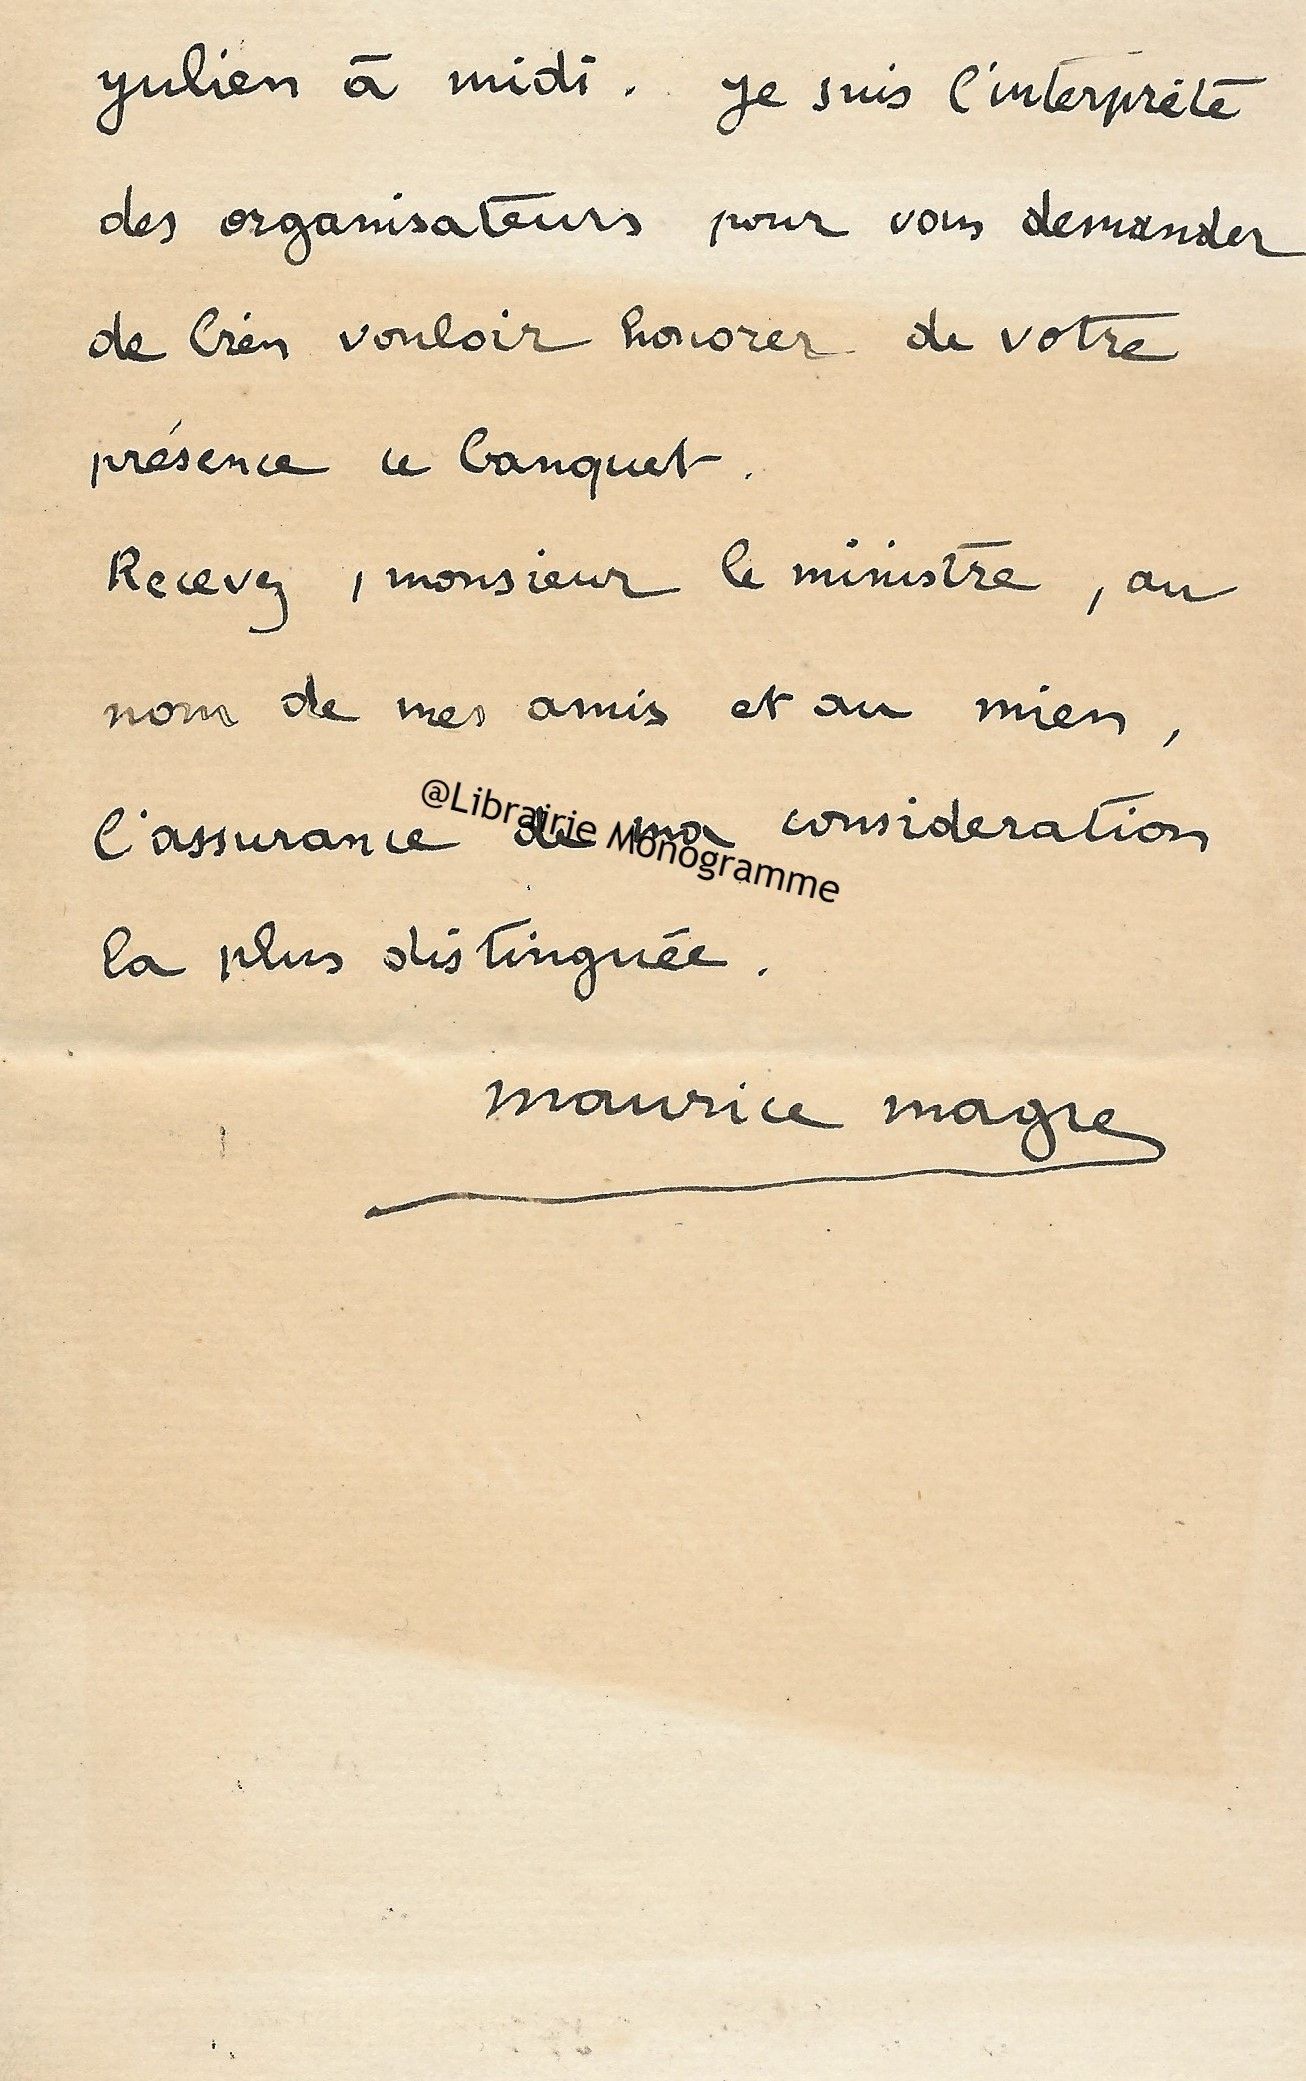 Julien à midi. Je suis l'interprète
des organisateurs pour vous demander
de bien vouloir honorer de votre
présence ce banquet.
Recevez, monsieur le ministre, au
nom de mes amis et au mien,
l'assurance de ma consideration
@Librairie Monogramme
la plus distinguée.
Maurice Magre